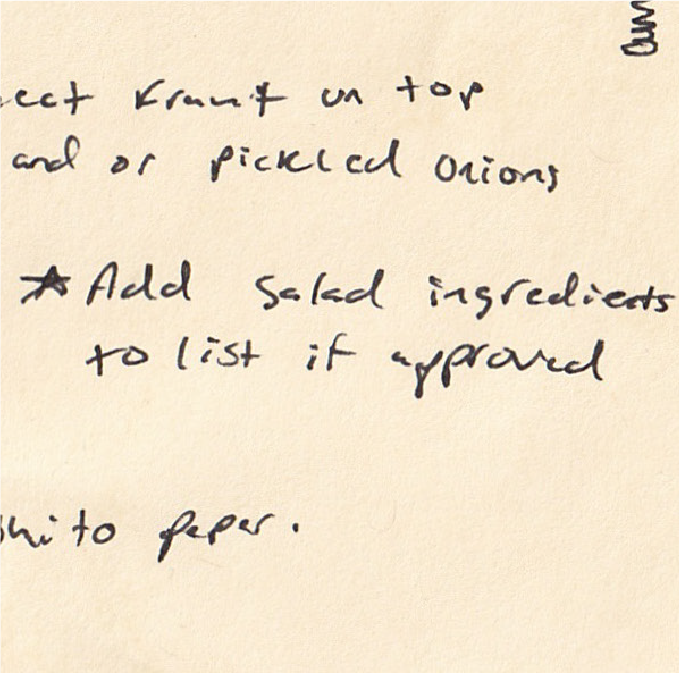 Kraut on top
and or pickled onions
★ Add salad ingredients
to list if approved
paper.